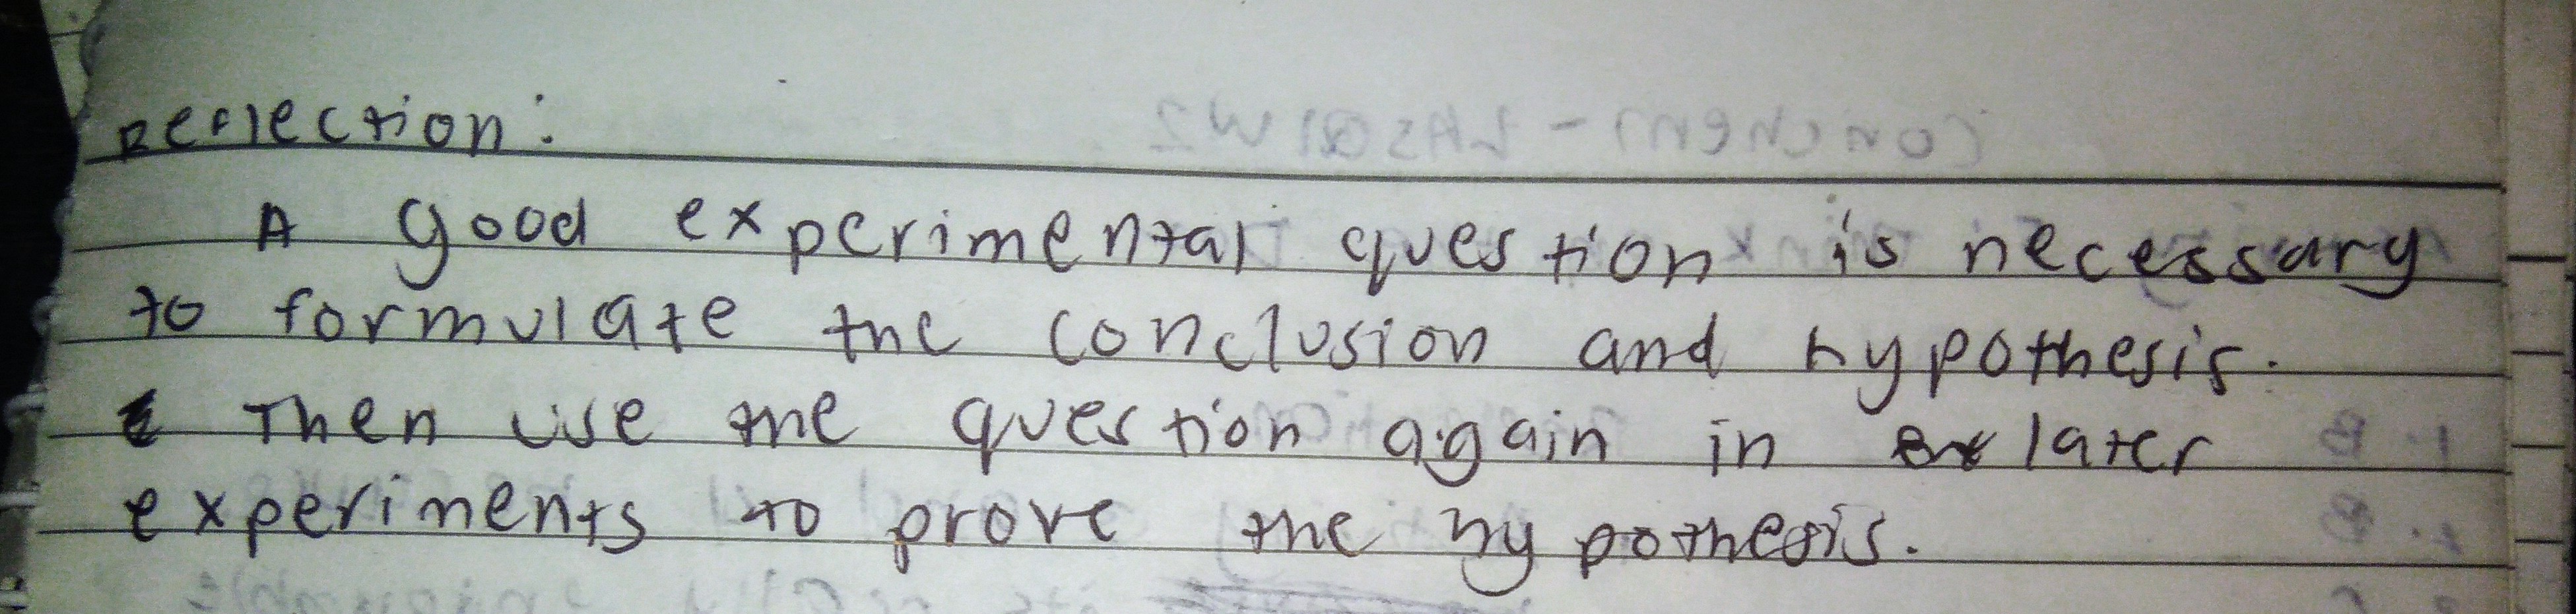 Reflection:
A good experimental question is necessary
to formulate the conclusion and hypothesis.
Then use the question again in later
experiments to prove the hypothesis.